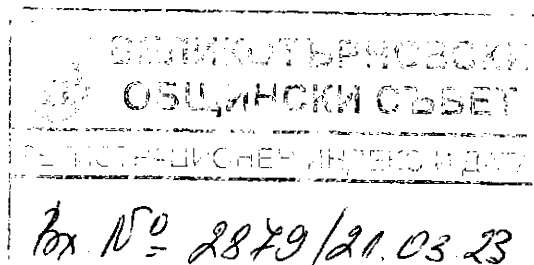 ВЕЛИКОТЪРНОВСКИ
ОБЩИНСКИ СЪВЕТ
РЕГИСТРАЦИОНЕН ИНДЕКС И ДАТА
Вх. № 2879/21.03.23